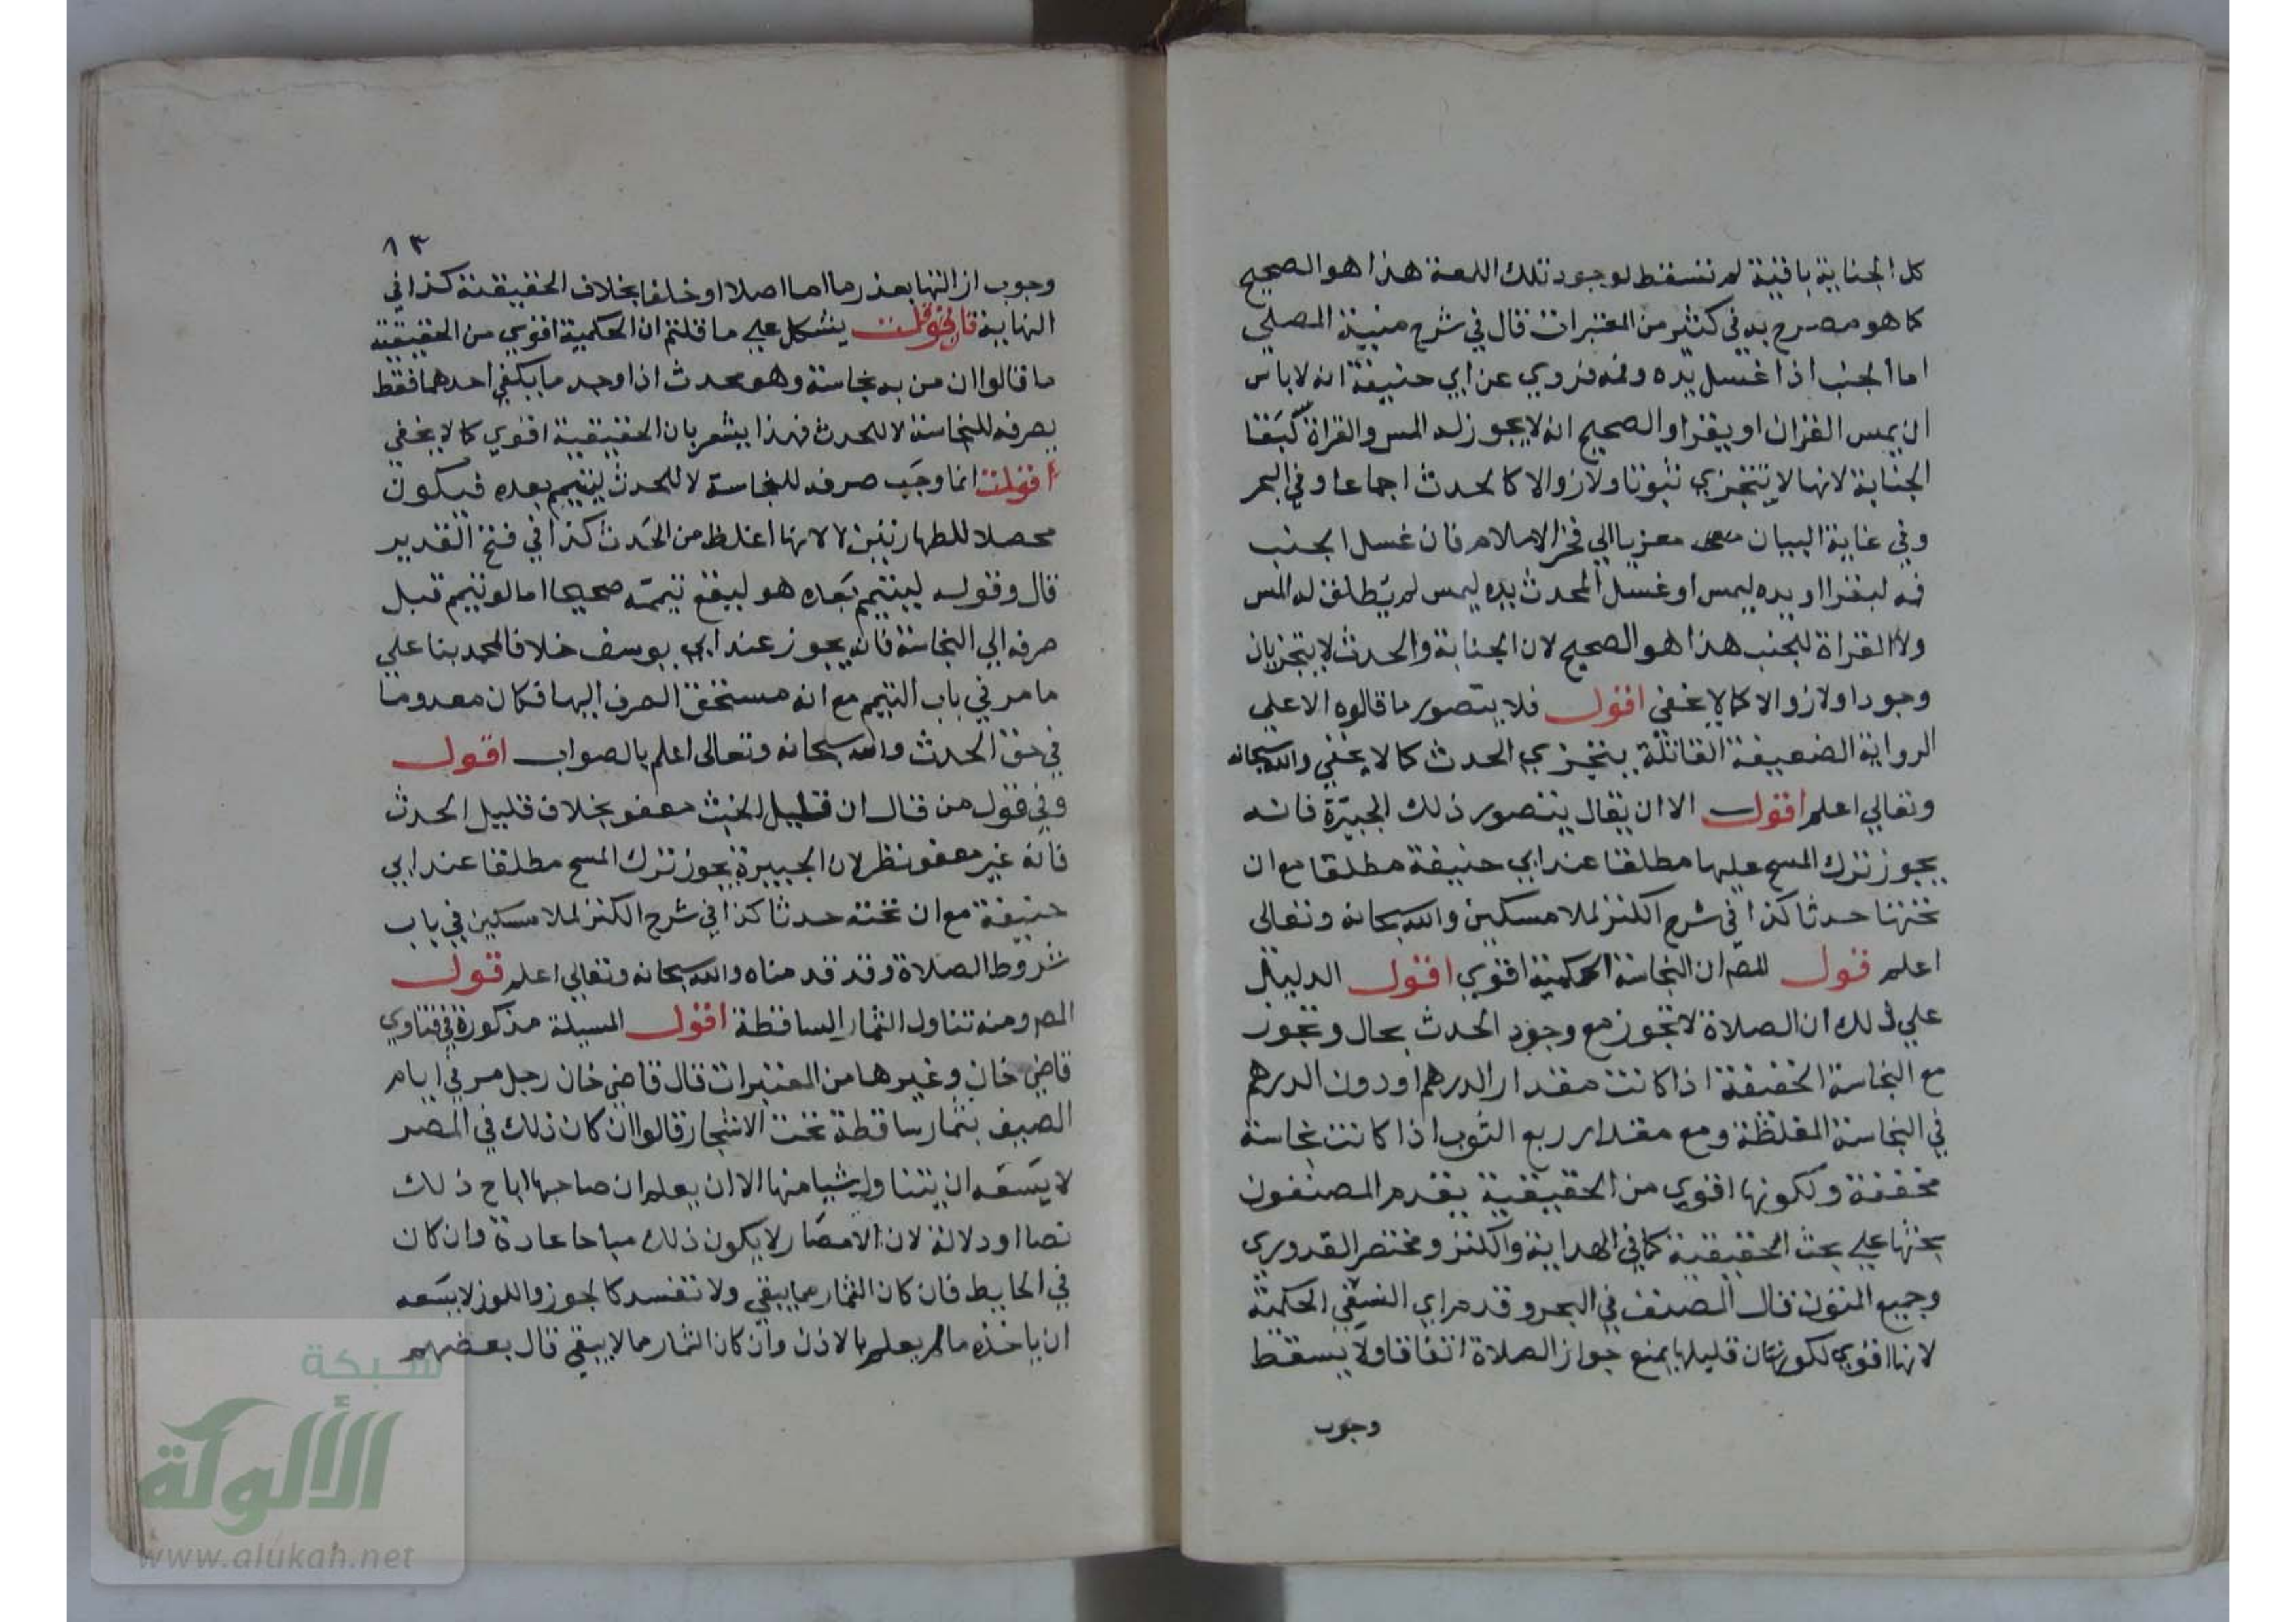 كل الجنابة باقية لم تسقط لوجود تلك اللمعة هذا هو الصحيح
كما هو مصرح به في كثير من المعتبرات قال في شرح منية المصلي
اما الجنب اذا غسل يده وفمه فروي عن ابي حنيفة انه لا باس
ان يمس القران او يقرا والصحيح انه لا يجوز له المس والقراة لبقا
الجنابة لانها لا تتجزي ثبوتا ولا زوالا كالحدث اجماعا وفي البحر
وفي غاية البيان معزيا الي فخر الاسلام فان غسل الجنب
فمه ليقرا او يده ليمس او غسل المحدث يده ليمس لم يطلق له المس
ولا القراة للجنب هذا هو الصحيح لان الجنابة والحدث لا يتجزيان
وجودا ولا زوالا كما لا يخفي اقول فلا يتصور ما قالوه الا علي
الرواية الضعيفة القائلة بتجزي الحدث كما لا يخفي والله سبحانه
وتعالي اعلم اقول الا ان يقال يتصور ذلك الجبيرة فانه
يجوز ترك المسح عليها مطلقا عند ابي حنيفة مطلقا مع ان
تحتها حدثا كذا في شرح الكنز لملا مسكين والله سبحانه وتعالى
اعلم قول المصر ان النجاسة الحكمية اقوي اقول الدليل
علي ذلك ان الصلاة لا تجوز مع وجود الحدث بحال وتجوز
مع النجاسة الخفيفة اذا كانت مقدار الدرهم او دون الدرهم
في النجاسة المغلظة ومع مقدار ربع الثوب اذا كانت نجاسة
مخففة ولكونها اقوي من الحقيقية يقدم المصنفون
بحثها علي بحث الحقيقية كما في الهداية والكنز ومختصر القدوري
وجميع المتون قال المصنف في البحر وقدم اي النسفي الحكمية
لانها اقوي لكون قليلها يمنع جواز الصلاة اتفاقا ولا يسقط
وجوب
١٣
وجوب ازالتها بعذر ما اما اصلا او خلفا بخلاف الحقيقية كذا في
النهاية فان قلت يشكل علي ما قلتم ان الحكمية اقوي من الحقيقية
ما قالوا ان من به نجاسة وهو محدث اذا وجد ما يكفي احدهما فقط
يصرفه للنجاسة لا للحدث فهذا يشعر بان الحقيقية اقوي كما لا يخفي
قلت انما وجب صرفه للنجاسة لا للحدث ليتيمم بعده فيكون
محصلا للطهارتين لا لانها اغلظ من الحدث كذا في فتح القدير
قال وقوله ليتيمم بعده هو ليقع تيممه صحيحا اما لو تيمم قبل
صرفه الي النجاسة فانه يجوز عند ابي يوسف خلافا لمحمد بنا علي
ما مر في باب التيمم مع انه مستحق الصرف اليها فكان معدوما
في حق الحدث والله سبحانه وتعالى اعلم بالصواب اقول
وفي قول من قال ان قليل الخبث معفو بخلاف قليل الحدث
فانه غير معفو نظر لان الجبيرة يجوز ترك المسح مطلقا عند ابي
حنيفة مع ان تحته حدثا كذا في شرح الكنز لملا مسكين في باب
شروط الصلاة وقد قدمناه والله سبحانه وتعالي اعلم قول
المصر ومنه تناول الثمار الساقطة اقول المسيلة مذكورة في فتاوي
قاضي خان وغيرها من المعتبرات قال قاضي خان رجل مر في ايام
الصيف بثمار ساقطة تحت الاشجار قالوا ان كان ذلك في المصر
لا يسعه ان يتناول شيا منها الا ان يعلم ان صاحبها اباح ذلك
نصا او دلالة لان الامصار لا يكون ذلك مباحا عادة وان كان
في الحايط فان كان الثمار مما يبقي ولا تفسد كالجوز واللوز لا يسعه
ان ياخذه ما لم يعلم بالاذن وان كان الثمار مما لا يبقي قال بعضهم
شبكة
الألوكة
www.alukah.net